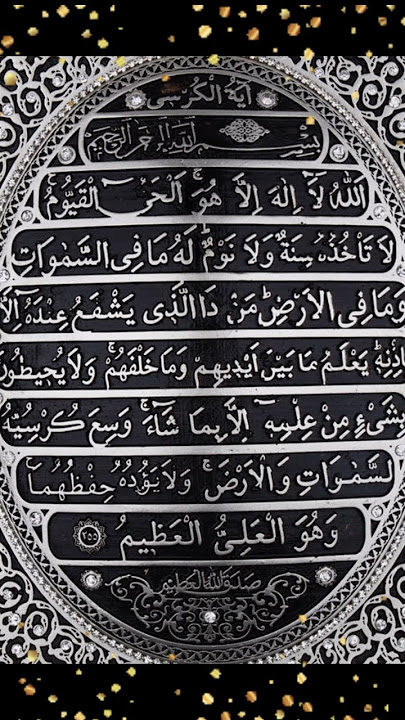 آية الكرسي
بسم الله الرحمن الرحيم
اَللّٰهُ لَآ اِلٰهَ اِلَّا هُوَۚ اَلْحَيُّ الْقَيُّومُ
لَا تَاْخُذُهُ سِنَةٌ وَلَا نَوْمٌؕ لَهُ مَا فِي السَّمٰوَاتِ
وَمَا فِي الْاَرْضِؕ مَنْ ذَا الَّذٖي يَشْفَعُ عِنْدَهُٓ اِلَّا
بِاِذْنِهٖؕ يَعْلَمُ مَا بَيْنَ اَيْدٖيهِمْ وَمَا خَلْفَهُمْۚ وَلَا يُحٖيطُونَ
بِشَيْءٍ مِنْ عِلْمِهٖٓ اِلَّا بِمَا شَٓاءَۚ وَسِعَ كُرْسِيُّهُ
السَّمٰوَاتِ وَالْاَرْضَۚ وَلَا يَؤُدُهُ حِفْظُهُمَاۚ
وَهُوَ الْعَلِيُّ الْعَظٖيمُ ٢٥٥
صدق الله العظيم